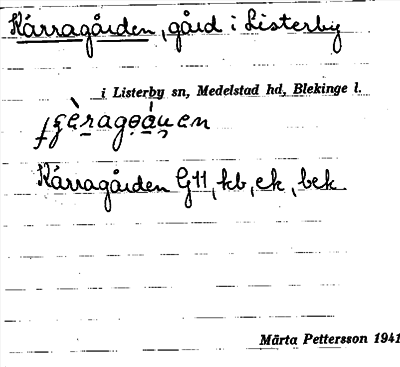 Kårragården, gård i Listerby
i Listerby sn, Medelstad hd, Blekinge l.
Kårragården G11, kb, ek, bek
Märta Pettersson 1941